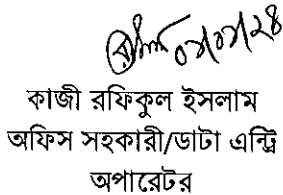 ০৭/০৭/২৪
কাজী রফিকুল ইসলাম
অফিস সহকারী/ডাটা এন্ট্রি
অপারেটর